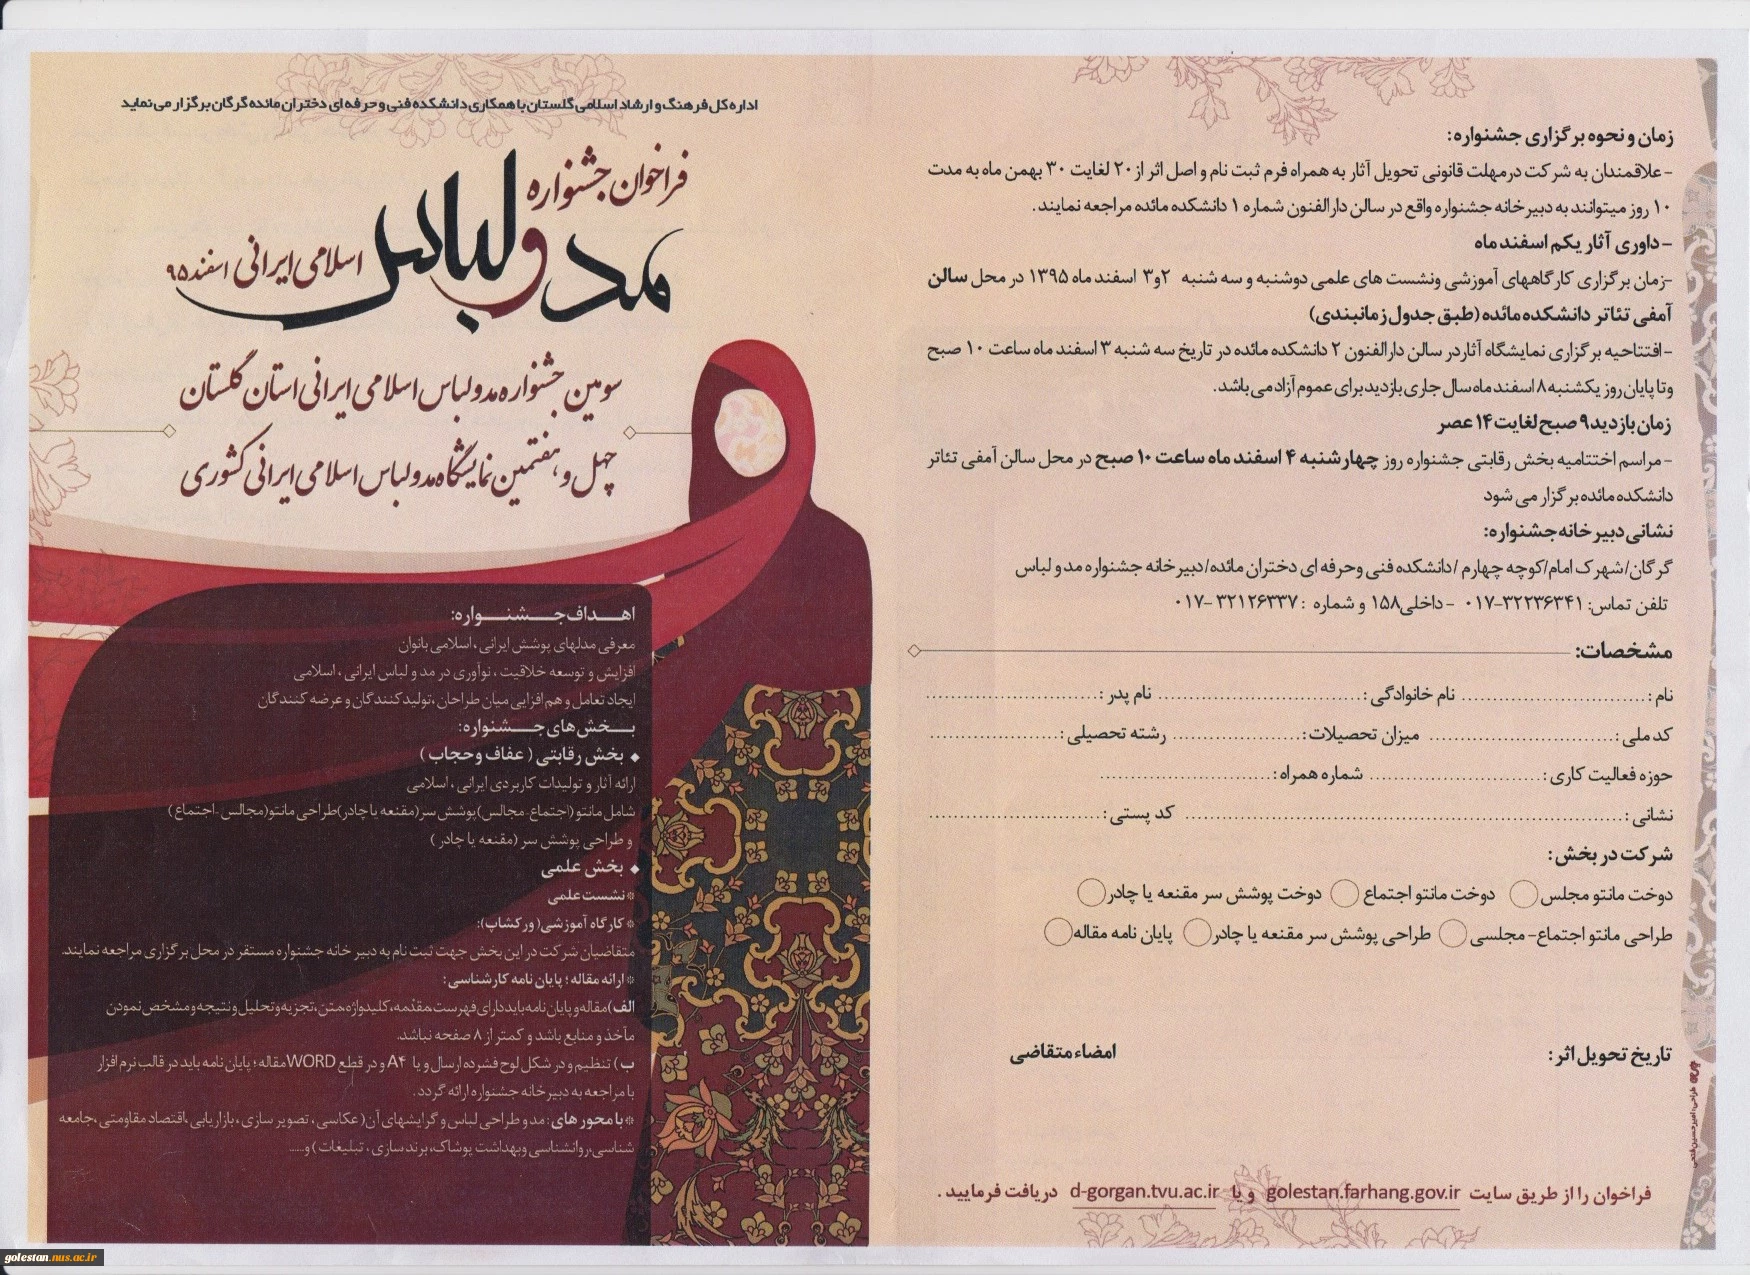 اداره کل فرهنگ و ارشاد اسلامی گلستان با همکاری دانشکده فنی و حرفه ای دختران مائده گرگان برگزار می نماید
فراخوان جشنواره
مد و لباس
اسلامی ایرانی اسفند ۹۵
سومین جشنواره مد و لباس اسلامی ایرانی استان گلستان
چهل و هفتمین نمایشگاه مد و لباس اسلامی ایرانی کشوری
اهداف جشنواره:
معرفی مدلهای پوشش ایرانی ، اسلامی بانوان
افزایش و توسعه خلاقیت ، نوآوری در مد و لباس ایرانی ، اسلامی
ایجاد تعامل و هم افزایی میان طراحان ،تولید کنندگان و عرضه کنندگان
بخش های جشنواره:
◆ بخش رقابتی ( عفاف و حجاب )
ارائه آثار و تولیدات کاربردی ایرانی ، اسلامی
شامل مانتو (اجتماع- مجالس)پوشش سر(مقنعه یا چادر)طراحی مانتو(مجالس -اجتماع )
و طراحی پوشش سر (مقنعه یا چادر )
◆ بخش علمی
* نشست علمی
* کارگاه آموزشی( ورکشاپ):
متقاضیان شرکت در این بخش جهت ثبت نام به دبیر خانه جشنواره مستقر در محل برگزاری مراجعه نمایند.
* ارائه مقاله ؛ پایان نامه کارشناسی:
الف)مقاله و پایان نامه باید دارای فهرست،مقدمه،کلیدواژه،متن،تجزیه و تحلیل و نتیجه و مشخص نمودن
مآخذ و منابع باشد و کمتر از ۸ صفحه نباشد.
ب) تنظیم و در شکل لوح فشرده ارسال و یا A۴ و در قطع WORD مقاله ؛ پایان نامه باید در قالب نرم افزار
با مراجعه به دبیر خانه جشنواره ارائه گردد .
* با محور های : مد و طراحی لباس و گرایشهای آن( عکاسی ، تصویر سازی ، بازاریابی ،اقتصاد مقاومتی ،جامعه
شناسی،روانشناسی وبهداشت پوشاک، برند سازی ، تبلیغات ) و......
زمان و نحوه برگزاری جشنواره:
-علاقمندان به شرکت درمهلت قانونی تحویل آثار به همراه فرم ثبت نام و اصل اثر از ۲۰ لغایت ۳۰ بهمن ماه به مدت
۱۰ روز میتوانند به دبیرخانه جشنواره واقع در سالن دارالفنون شماره ۱ دانشکده مائده مراجعه نمایند.
-داوری آثار یکم اسفند ماه
-زمان برگزاری کارگاههای آموزشی ونشست های علمی دوشنبه و سه شنبه ۲و۳ اسفند ماه ۱۳۹۵ در محل سالن
آمفی تئاتر دانشکده مائده (طبق جدول زمانبندی)
-افتتاحیه برگزاری نمایشگاه آثاردر سالن دارالفنون ۲ دانشکده مائده در تاریخ سه شنبه ۳ اسفند ماه ساعت ۱۰ صبح
وتا پایان روز یکشنبه ۸ اسفند ماه سال جاری بازدید برای عموم آزاد می باشد.
زمان بازدید ۹ صبح لغایت ۱۴ عصر
-مراسم اختتامیه بخش رقابتی جشنواره روز چهارشنبه ۴ اسفند ماه ساعت ۱۰ صبح در محل سالن آمفی تئاتر
دانشکده مائده برگزار می شود
نشانی دبیر خانه جشنواره:
گرگان/شهرک امام/کوچه چهارم /دانشکده فنی وحرفه ای دختران مائده/دبیرخانه جشنواره مد و لباس
تلفن تماس: ۳۲۲۳۶۳۴۱-۰۱۷ - داخلی۱۵۸ و شماره : ۳۲۱۲۶۳۳۷ -۰۱۷
مشخصات:
نام : ........................... نام خانوادگی : ........................... نام پدر : ...........................
کد ملی : ........................... میزان تحصیلات : ................... رشته تحصیلی : ...................
حوزه فعالیت کاری : ........................... شماره همراه : ...........................
نشانی : ............................................................ کد پستی : ...........................
شرکت در بخش :
دوخت مانتو مجلس دوخت مانتو اجتماع دوخت پوشش سر مقنعه یا چادر
طراحی مانتو اجتماع- مجلسی طراحی پوشش سر مقنعه یا چادر پایان نامه مقاله
تاریخ تحویل اثر : امضاء متقاضی
طراحی: امیرحسین فتحی
فراخوان را از طریق سایت golestan.farhang.gov.ir و یا d-gorgan.tvu.ac.ir دریافت فرمایید .
golestan.nus.ac.ir